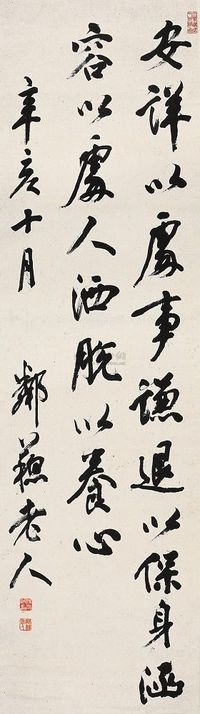 安詳以處事謙退以保身涵
容以處人洒脫以養心
辛亥十月 鄰蘇老人